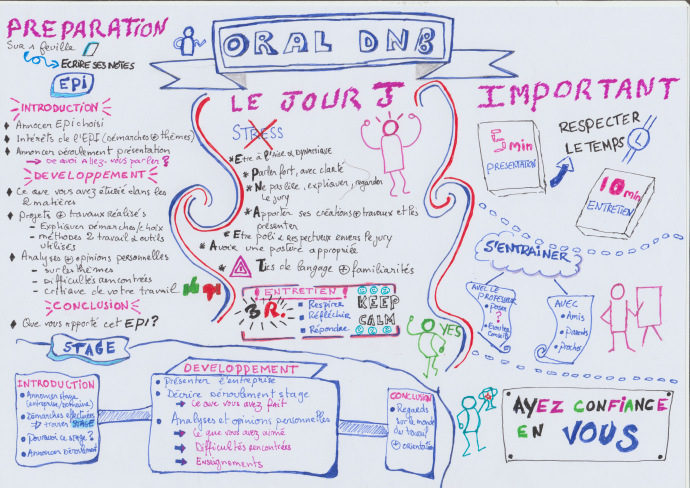 ORAL DNB
PREPARATION
Sur 1 feuille
ECRIRE SES NOTES
EPI
INTRODUCTION
Annoncer EPI choisi
Intérêts de l'EPI (démarches ⊕ thèmes)
Annoncer déroulement présentation
→ De quoi allez-vous parler ?
DEVELOPPEMENT
Ce que vous avez étudié dans les
2 matières
Projets ⊕ travaux réalisés
- Expliquer démarches/choix
- méthodes 2 travail & outils
utilisés
Analyses ⊕ opinions personnelles
- sur les thèmes
- Difficultés rencontrées
- Critique de votre travail
CONCLUSION
Que vous apporté cet EPI ?
LE JOUR J
STRESS
* Etre à l'aise & dynamique
* Parler fort, avec clarté
* Ne pas lire, expliquer, regarder
le jury
* Apporter ses créations ⊕ travaux et les
présenter
* Etre poli & respectueux envers le jury
* Avoir une posture appropriée
* ! Tics de langage ⊕ familiarités
ENTRETIEN
3 R!
Respirer
Réfléchir
Répondre
KEEP
CALM
YES
IMPORTANT
5 min
PRESENTATION
RESPECTER
LE TEMPS
10 min
ENTRETIEN
S'ENTRAINER
AVEC LE
PROFESSEUR
Poser
?
Ecouter
Conseils
AVEC
Amis
Parents
Proches
AYEZ CONFIANCE
EN VOUS
STAGE
INTRODUCTION
Annoncer stage
(entreprise/domaine)
Démarches effectuées
⇒ trouver STAGE
Pourquoi ce stage ?
Annoncer Déroulement
DEVELOPPEMENT
Présenter l'entreprise
Décrire déroulement stage
→ Ce que vous avez fait
Analyses et opinions personnelles
→ Ce que vous avez aimé
→ Difficultés rencontrées
→ Enseignements
CONCLUSION
Regards
sur le monde
du travail
⊕ orientation